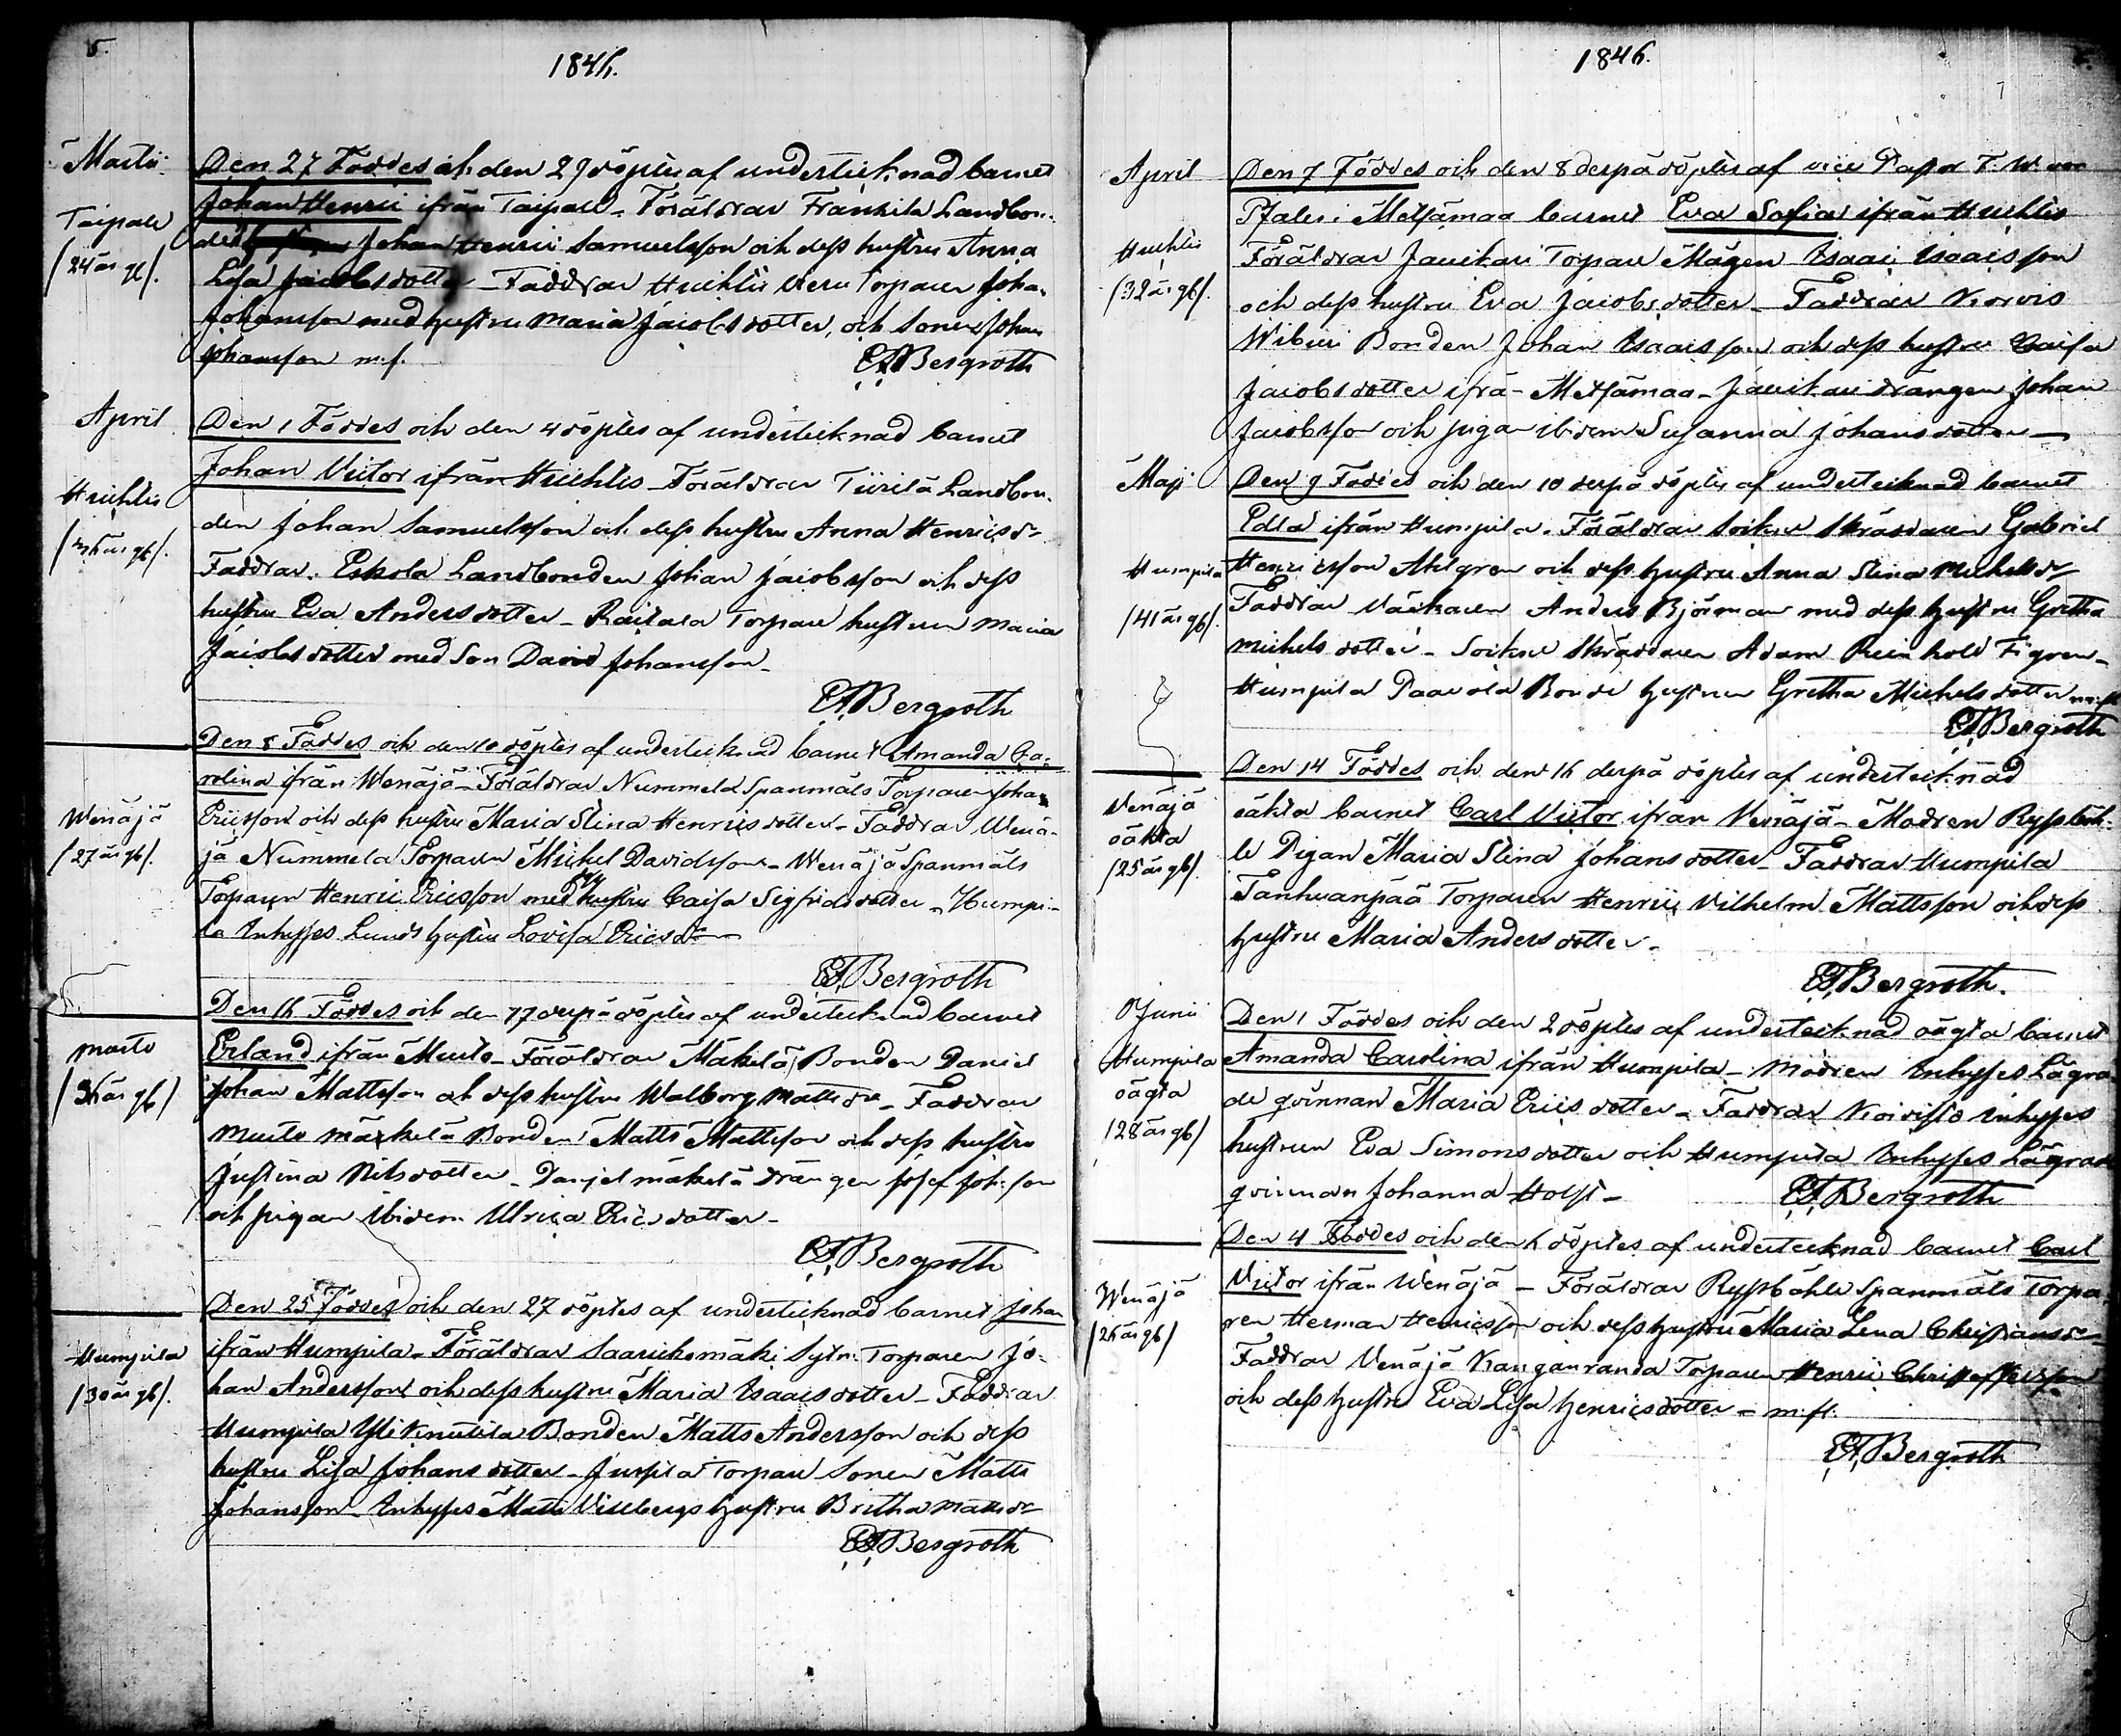 5.
1846.
Martii
Taipale
/24 år gl/.
Den 27 Föddes och den 29 döptes af undertecknad barnet
Johan Henric ifrån Taipale - Föräldrar Frankila Landbon-
den Johan Henric Samuelsson och dess hustru Anna
Lisa Jacobsdotter - Faddrar Huchtis Torparen Johan
Johansson med hustru Maria Jacobsdotter, och sonen Johan
Johansson m.f.
EFBergroth
April
Huchtis
Den 1 Föddes och den 4 döptes af undertecknad barnet
Johan Victor ifrån Huchtis - Föräldrar Tiirilä Landbon-
den Johan Samuelsson och dess hustru Anna Henricsdr
Faddrar. Eskola Landbonden Johan Jacobsson och dess
hustru Eva Andersdotter - Raitala Torpare hustrun Maria
Jacobsdotter med Son David Johansson -
EFBergroth
Wenäjä
/27 år gl/.
Den 8 Föddes och den 10 döptes af undertecknad barnet Amanda Ca-
rolina ifrån Wenäjä - Föräldrar Nummela Spanmåls Torparen Johan
Ericsson och dess hustru Maria Stina Henricsdotter - Faddrar Wenä-
jä Nummela Torparen Michel Davidsson - Wenäjä Spanmåls
Torparen Henric Ericsson med hustru Caisa Sigfridsdotter - Humpi-
la Inhyses Lunds hustru Lovisa Ericsdr
EFBergroth
Murto
/36 år gl/
Den 16 Föddes och den 17 derpå döptes af undertecknad barnet
Erland ifrån Murto - Föräldrar Mäkelä Bonden Daniel
Johan Mattsson och dess hustru Walborg Mattsdr - Faddrar
Murto Mäkelä Bonden Matts Mattsson och dess hustru
Justina Nilsdotter - Danjel Mäkelä drängen Josef Joh:son
och pigan ibidem Ulrica Ericsdotter -
EFBergroth
Humpila
/30 år gl/.
Den 25 Föddes och den 27 döptes af undertecknad barnet Johan
ifrån Humpila - Föräldrar Saariksmäki Sytn. Torparen Jo-
han Andersson och dess hustru Maria Isaacsdotter - Faddrar
Humpila Yli Knutila Bonden Matts Andersson och dess
hustru Lisa Johansdotter - Juspila Torpare Sonen Matts
Johansson - Inhyses Matts Villbergs hustru Britha Mattsdr
EFBergroth
1846.
April
Huchtis
/32 år gl/.
Den 7 Föddes och den 8 derpå döptes af vice Pastor F. W. von
Pfaler i Metsämaa barnet Eva Sofia ifrån Huchtis
Föräldrar Jauckari Torpare Mågen Isaac Isaacsson
och dess hustru Eva Jacobsdotter - Faddrar Korvis
Wiberi Bonden Johan Isaacsson och dess hustru Caisa
Jacobsdotter ifrå - Metsämaa - Jauckari drängen Johan
Jacobsson och pigan ibidem Susanna Johansdotter -
Maji
Humpila
/41 år gl/.
Den 9 Föddes och den 10 derpå döptes af undertecknad barnet
Edla ifrån Humpila. Föräldrar Sockne Skräddaren Gabriel
Henricsson Ahlgren och dess hustru Anna Stina Michelsdr
Faddrar Väckaren Anders Björman med dess hustru Gretha
Michelsdotter - Sockne Skräddaren Adam Reinhold Figren -
Humpila Paavola Bonde hustrun Gretha Michelsdotter m.fl
EFBergroth
Venäjä
oäkta
/25 år gl/.
Den 14 Föddes och den 16 derpå döptes af undertecknad
oäkta barnet Carl Victor ifrån Venäjä - Modren Ryssböh-
le Pigan Maria Stina Johansdotter - Faddrar Humpila
Tanhuanpää Torparen Henric Vilhelm Mattsson och dess
hustru Maria Andersdotter -
EFBergroth.
Junii
Humpila
oägta
/28 år gl/
Den 1 Föddes och den 2 döptes af undertecknad oägta barnet
Amanda Carolina ifrån Humpila - Modren Inhyses Lägra-
de qvinnan Maria Ericsdotter - Faddrar Koivisto Inhyses
hustrun Eva Simonsdotter och Humpila Inhyses Lägrade
qvinnan Johanna Holst -
EFBergroth
Wenäjä
/26 år gl/
Den 4 Föddes och den 6 döptes af undertecknad barnet Carl
Victor ifrån Wenäjä - Föräldrar Ryssböhle Spanmåls Torpa-
ren Herman Henricsson och dess hustru Maria Lena Christiansdr
Faddrar Venäjä Kanganranda Torparen Henric Christoffersson
och dess hustru Eva Lisa Henricsdotter - m.fl.
EFBergroth